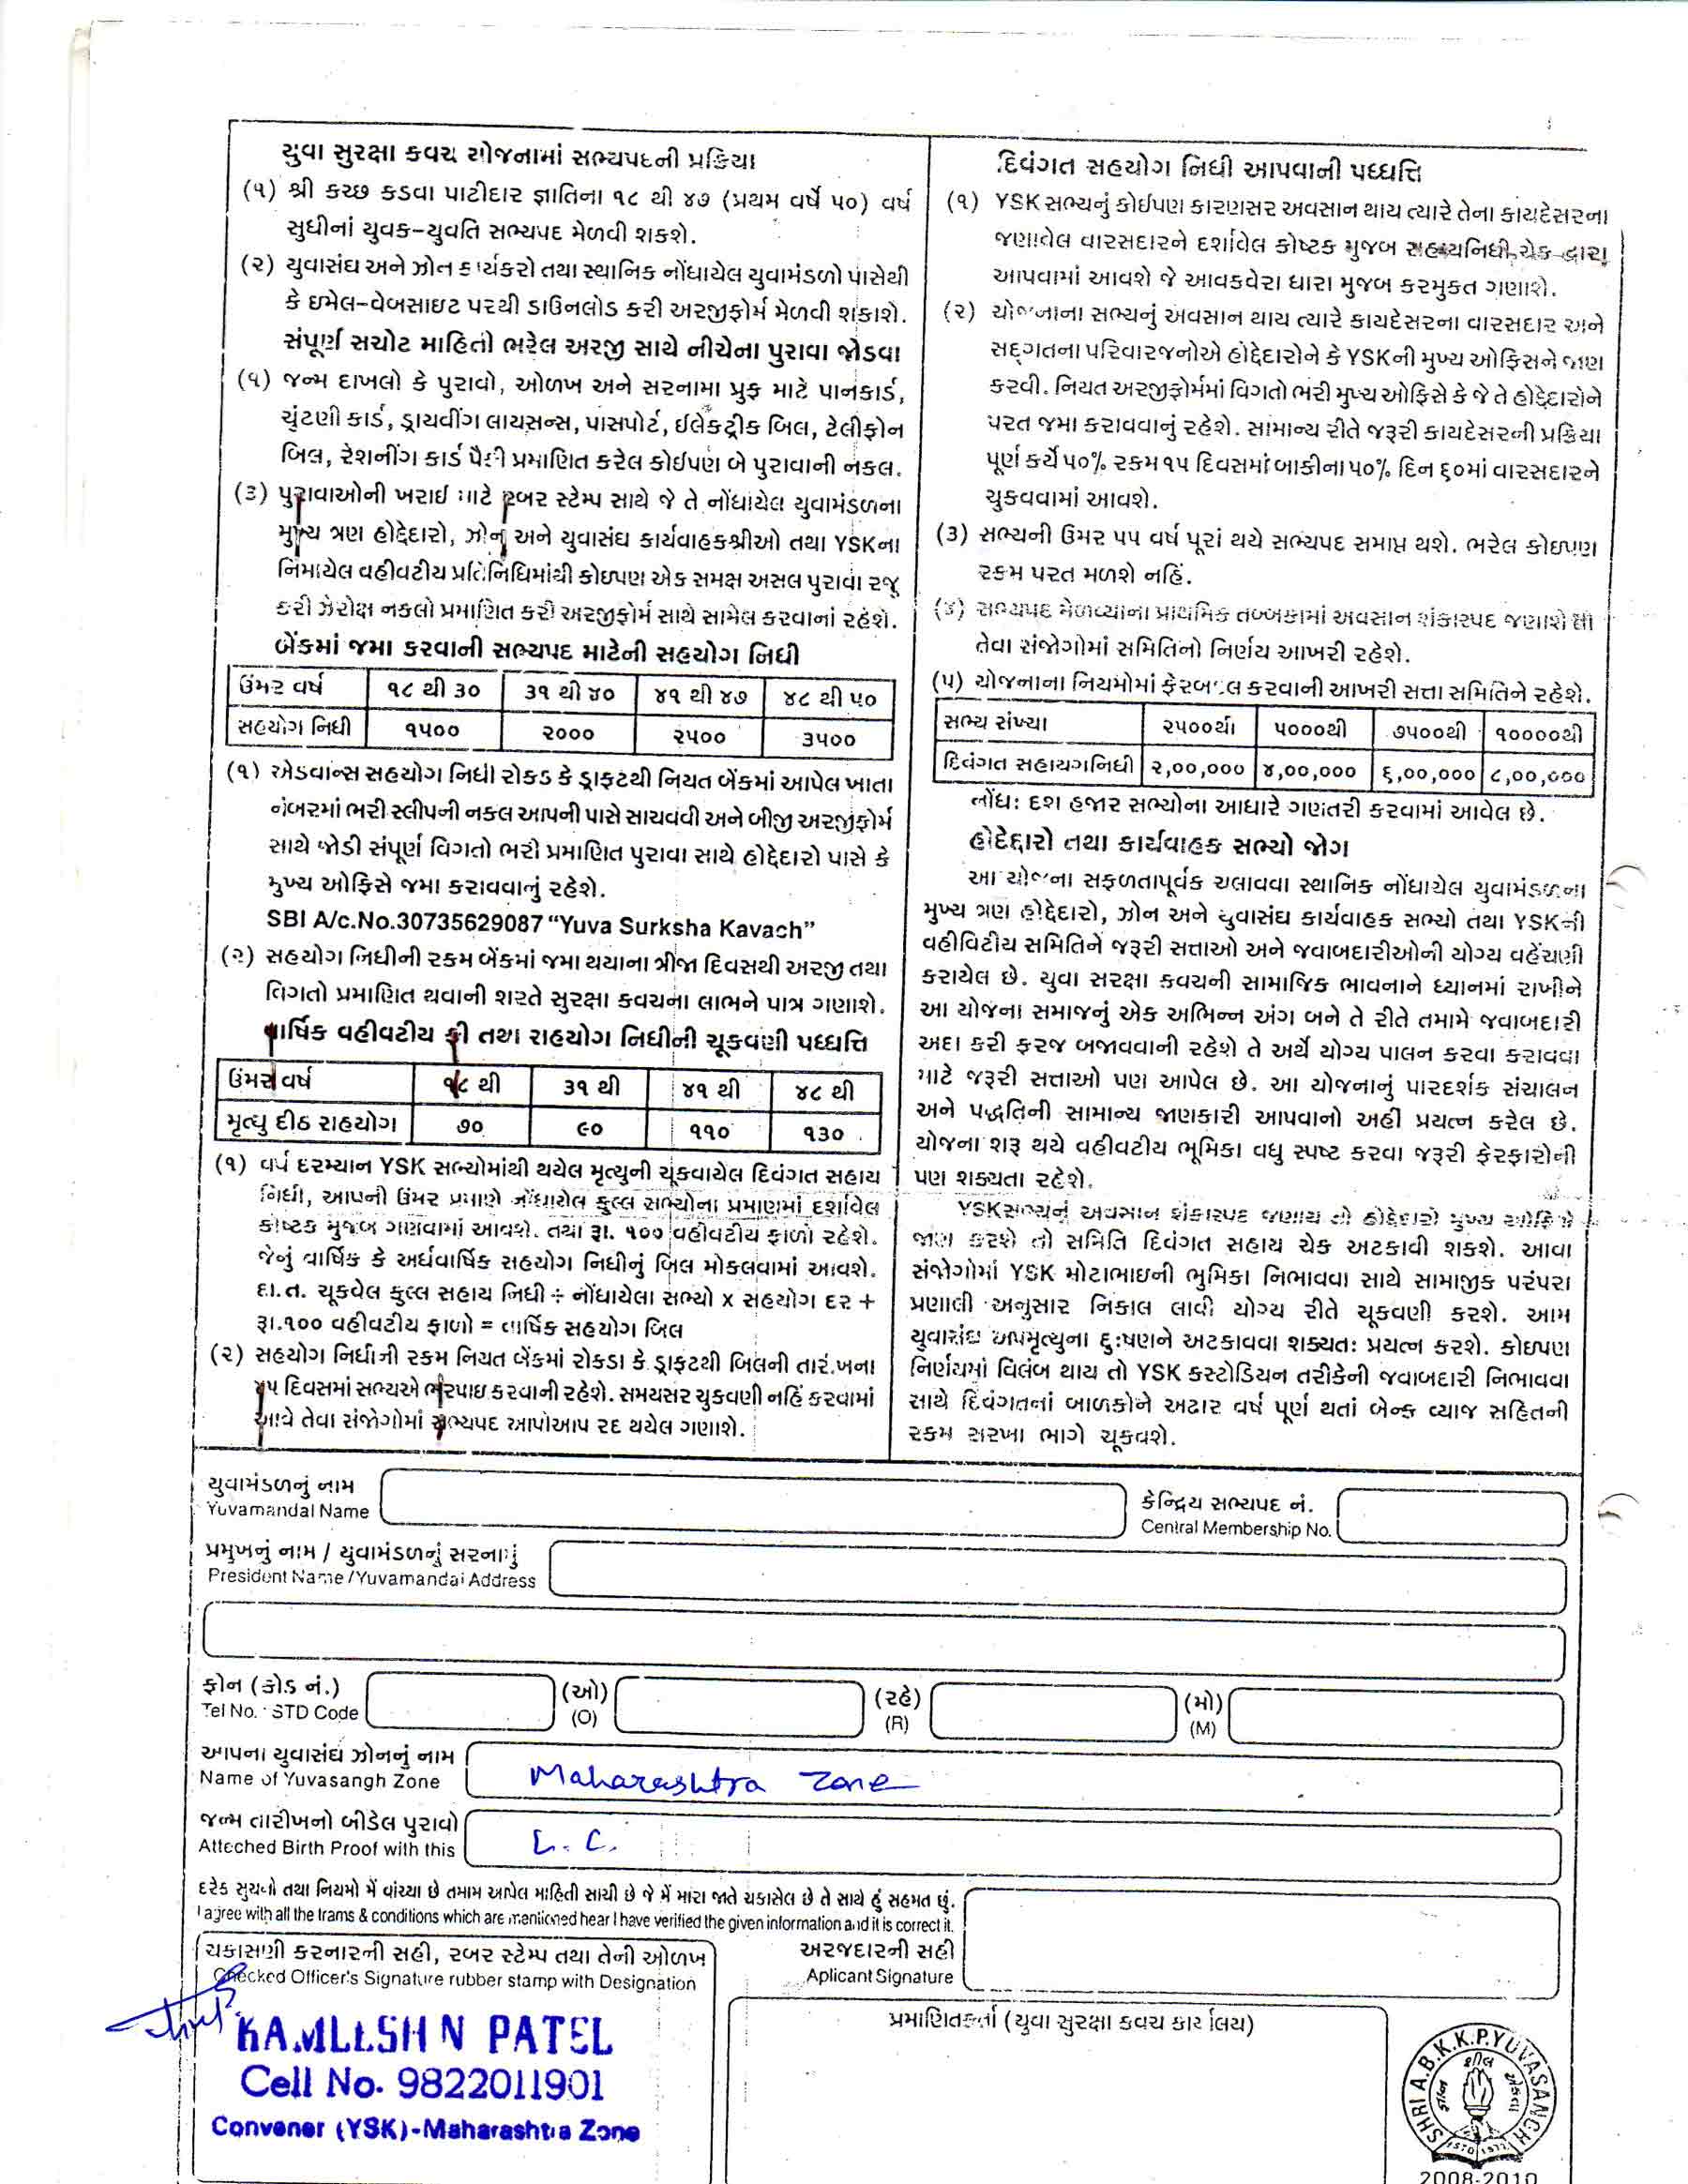 યુવા સુરક્ષા કવચ યોજનામાં સભ્યપદની પ્રક્રિયા
(૧) શ્રી કચ્છ કડવા પાટીદાર જ્ઞાતિના ૧૮ થી ૪૭ (પ્રથમ વર્ષે ૫૦) વર્ષ
સુધીનાં યુવક-યુવતિ સભ્યપદ મેળવી શકશે.
(૨) યુવાસંઘ અને ઝોન કાર્યકરો તથા સ્થાનિક નોંધાયેલ યુવામંડળો પાસેથી
કે ઇમેલ-વેબસાઇટ પરથી ડાઉનલોડ કરી અરજીફોર્મ મેળવી શકાશે.
સંપૂર્ણ સચોટ માહિતી ભરેલ અરજી સાથે નીચેના પુરાવા જોડવા
(૧) જન્મ દાખલો કે પુરાવો, ઓળખ અને સરનામા પ્રુફ માટે પાનકાર્ડ,
ચુંટણી કાર્ડ, ડ્રાયવીંગ લાયસન્સ, પાસપોર્ટ, ઈલેકટ્રીક બિલ, ટેલીફોન
બિલ, રેશનીંગ કાર્ડ પૈકી પ્રમાણિત કરેલ કોઈપણ બે પુરાવાની નકલ.
(૩) પુરાવાઓની ખરાઇ માટે રબર સ્ટેમ્પ સાથે જે તે નોંધાયેલ યુવામંડળના
મુખ્ય ત્રણ હોદ્દેદારો, ઝોન અને યુવાસંઘ કાર્યવાહકશ્રીઓ તથા YSKના
નિમાયેલ વહીવટીય પ્રતિનિધિમાંથી કોઇપણ એક સમક્ષ અસલ પુરાવા રજૂ
કરી ઝેરોક્ષ નકલો પ્રમાણિત કરી અરજીફોર્મ સાથે સામેલ કરવાનાં રહેશે.
બેંકમાં જમા કરવાની સભ્યપદ માટેની સહયોગ નિધી
ઉંમર વર્ષ ૧૮ થી ૩૦ ૩૧ થી ૪૦ ૪૧ થી ૪૭ ૪૮ થી ૫૦
સહયોગ નિધી ૧૫૦૦ ૨૦૦૦ ૨૫૦૦ ૩૫૦૦
(૧) એડવાન્સ સહયોગ નિધી રોકડ કે ડ્રાફટથી નિયત બેંકમાં આપેલ ખાતા
નંબરમાં ભરી સ્લીપની નકલ આપની પાસે સાચવવી અને બીજી અરજીફોર્મ
સાથે જોડી સંપૂર્ણ વિગતો ભરી પ્રમાણિત પુરાવા સાથે હોદ્દેદારો પાસે કે
મુખ્ય ઓફિસે જમા કરાવવાનું રહેશે.
SBI A/c.No.30735629087 “Yuva Surksha Kavach”
(૨) સહયોગ નિધીની રકમ બેંકમાં જમા થયાના ત્રીજા દિવસથી અરજી તથા
વિગતો પ્રમાણિત થવાની શરતે સુરક્ષા કવચના લાભને પાત્ર ગણાશે.
વાર્ષિક વહીવટીય ફી તથા સહયોગ નિધીની ચૂકવણી પધ્ધતિ
ઉંમર વર્ષ ૧૮ થી ૩૧ થી ૪૧ થી ૪૮ થી
મૃત્યુ દીઠ સહયોગ ૭૦ ૯૦ ૧૧૦ ૧૩૦
(૧) વર્ષ દરમ્યાન YSK સભ્યોમાંથી થયેલ મૃત્યુની ચૂકવાયેલ દિવંગત સહાય
નિધી, આપની ઉંમર પ્રમાણે નોંધાયેલ કુલ્લ સભ્યોના પ્રમાણમાં દર્શાવેલ
કોષ્ટક મુજબ ગણવામાં આવશે. તથા રૂા. ૧૦૦ વહીવટીય ફાળો રહેશે.
જેનું વાર્ષિક કે અર્ધવાર્ષિક સહયોગ નિધીનું બિલ મોકલવામાં આવશે.
દા.ત. ચૂકવેલ કુલ્લ સહાય નિધી ÷ નોંધાયેલા સભ્યો x સહયોગ દર +
રૂા.૧૦૦ વહીવટીય ફાળો = વાર્ષિક સહયોગ બિલ
(૨) સહયોગ નિધીની રકમ નિયત બેંકમાં રોકડા કે ડ્રાફટથી બિલની તારીખના
૪૫ દિવસમાં સભ્યએ ભરપાઇ કરવાની રહેશે. સમયસર ચુકવણી નહિં કરવામાં
આવે તેવા સંજોગોમાં સભ્યપદ આપોઆપ રદ થયેલ ગણાશે.
દિવંગત સહયોગ નિધી આપવાની પધ્ધતિ
(૧) YSK સભ્યનું કોઈપણ કારણસર અવસાન થાય ત્યારે તેના કાયદેસરના
જણાવેલ વારસદારને દર્શાવેલ કોષ્ટક મુજબ સહાયનિધી ચેક દ્વારા
આપવામાં આવશે જે આવકવેરા ધારા મુજબ કરમુકત ગણાશે.
(૨) યોજનાના સભ્યનું અવસાન થાય ત્યારે કાયદેસરના વારસદાર અને
સદ્ગતના પરિવારજનોએ હોદ્દેદારોને કે YSKની મુખ્ય ઓફિસને જાણ
કરવી. નિયત અરજીફોર્મમાં વિગતો ભરી મુખ્ય ઓફિસે કે જે તે હોદ્દેદારોને
પરત જમા કરાવવાનું રહેશે. સામાન્ય રીતે જરૂરી કાયદેસરની પ્રક્રિયા
પૂર્ણ કર્યે ૫૦% રકમ ૧૫ દિવસમાં બાકીના ૫૦% દિન ૬૦માં વારસદારને
ચુકવવામાં આવશે.
(૩) સભ્યની ઉંમર ૫૫ વર્ષ પૂરાં થયે સભ્યપદ સમાપ્ત થશે. ભરેલ કોઇપણ
રકમ પરત મળશે નહિં.
(૪) સભ્યપદ મેળવ્યાના પ્રાથમિક તબ્બકામાં અવસાન શંકાસ્પદ જણાશે તો
તેવા સંજોગોમાં સમિતિનો નિર્ણય આખરી રહેશે.
(૫) યોજનાના નિયમોમાં ફેરબદલ કરવાની આખરી સત્તા સમિતિને રહેશે.
સભ્ય સંખ્યા ૨૫૦૦થી ૫૦૦૦થી ૭૫૦૦થી ૧૦૦૦૦થી
દિવંગત સહાયગનિધી ૨,૦૦,૦૦૦ ૪,૦૦,૦૦૦ ૬,૦૦,૦૦૦ ૮,૦૦,૦૦૦
નોંધ: દશ હજાર સભ્યોના આધારે ગણતરી કરવામાં આવેલ છે.
હોદેદ્દારો તથા કાર્યવાહક સભ્યો જોગ
આ યોજના સફળતાપૂર્વક ચલાવવા સ્થાનિક નોંધાયેલ યુવામંડળના
મુખ્ય ત્રણ હોદ્દેદારો, ઝોન અને યુવાસંઘ કાર્યવાહક સભ્યો તથા YSKની
વહીવિટીય સમિતિને જરૂરી સત્તાઓ અને જવાબદારીઓની યોગ્ય વહેંચણી
કરાયેલ છે. યુવા સરક્ષા કવચની સામાજિક ભાવનાને ધ્યાનમાં રાખીને
આ યોજના સમાજનું એક અભિન્ન અંગ બને તે રીતે તમામે જવાબદારી
અદા કરી ફરજ બજાવવાની રહેશે તે અર્થે યોગ્ય પાલન કરવા કરાવવા
માટે જરૂરી સત્તાઓ પણ આપેલ છે. આ યોજનાનું પારદર્શક સંચાલન
અને પદ્ધતિની સામાન્ય જાણકારી આપવાનો અહીં પ્રયત્ન કરેલ છે.
યોજના શરૂ થયે વહીવટીય ભૂમિકા વધુ સ્પષ્ટ કરવા જરૂરી ફેરફારોની
પણ શક્યતા રહેશે.
YSKસભ્યનું અવસાન શંકાસ્પદ જણાય તો હોદ્દેદારો મુખ્ય ઓફિસે
જાણ કરશે તો સમિતિ દિવંગત સહાય ચેક અટકાવી શકશે. આવા
સંજોગોમાં YSK મોટાભાઇની ભુમિકા નિભાવવા સાથે સામાજીક પરંપરા
પ્રણાલી અનુસાર નિકાલ લાવી યોગ્ય રીતે ચૂકવણી કરશે. આમ
યુવાસંઘ અપમૃત્યુના દુ:ષણને અટકાવવા શક્યત: પ્રયત્ન કરશે. કોઇપણ
નિર્ણયમાં વિલંબ થાય તો YSK કસ્ટોડિયન તરીકેની જવાબદારી નિભાવવા
સાથે દિવંગતનાં બાળકોને અઢાર વર્ષ પૂર્ણ થતાં બેન્ક વ્યાજ સહિતની
રકમ સરખા ભાગે ચૂકવશે.
યુવામંડળનું નામ
Yuvamandal Name
કેન્દ્રિય સભ્યપદ નં.
Central Membership No.
પ્રમુખનું નામ / યુવામંડળનું સરનામું
President Name/Yuvamandal Address
ફોન (કોડ નં.) (ઓ) (રહે) (મો)
Tel No. STD Code (O) (R) (M)
આપના યુવાસંઘ ઝોનનું નામ
Name of Yuvasangh Zone
Maharashtra Zone
જન્મ તારીખનો બીડેલ પુરાવો
Atteched Birth Proof with this
L.C.
દરેક સુચનો તથા નિયમો મેં વાંચ્યા છે તમામ આપેલ માહિતી સાચી છે જે મેં મારા જાતે ચકાસેલ છે તે સાથે હું સહમત છું.
I agree with all the trams & conditions which are mentioned hear I have verified the given information and it is correct it.
ચકાસણી કરનારની સહી, રબર સ્ટેમ્પ તથા તેની ઓળખ
Checked Officer's Signature rubber stamp with Designation
અરજદારની સહી
Aplicant Signature
KAMLESH N PATEL
Cell No. 9822011901
Convener (YSK)-Maharashtra Zone
પ્રમાણિતકર્તા (યુવા સુરક્ષા કવચ કાર્યાલય)
SHRI A.B.K.K.P.YUVASANGH
2008-2010